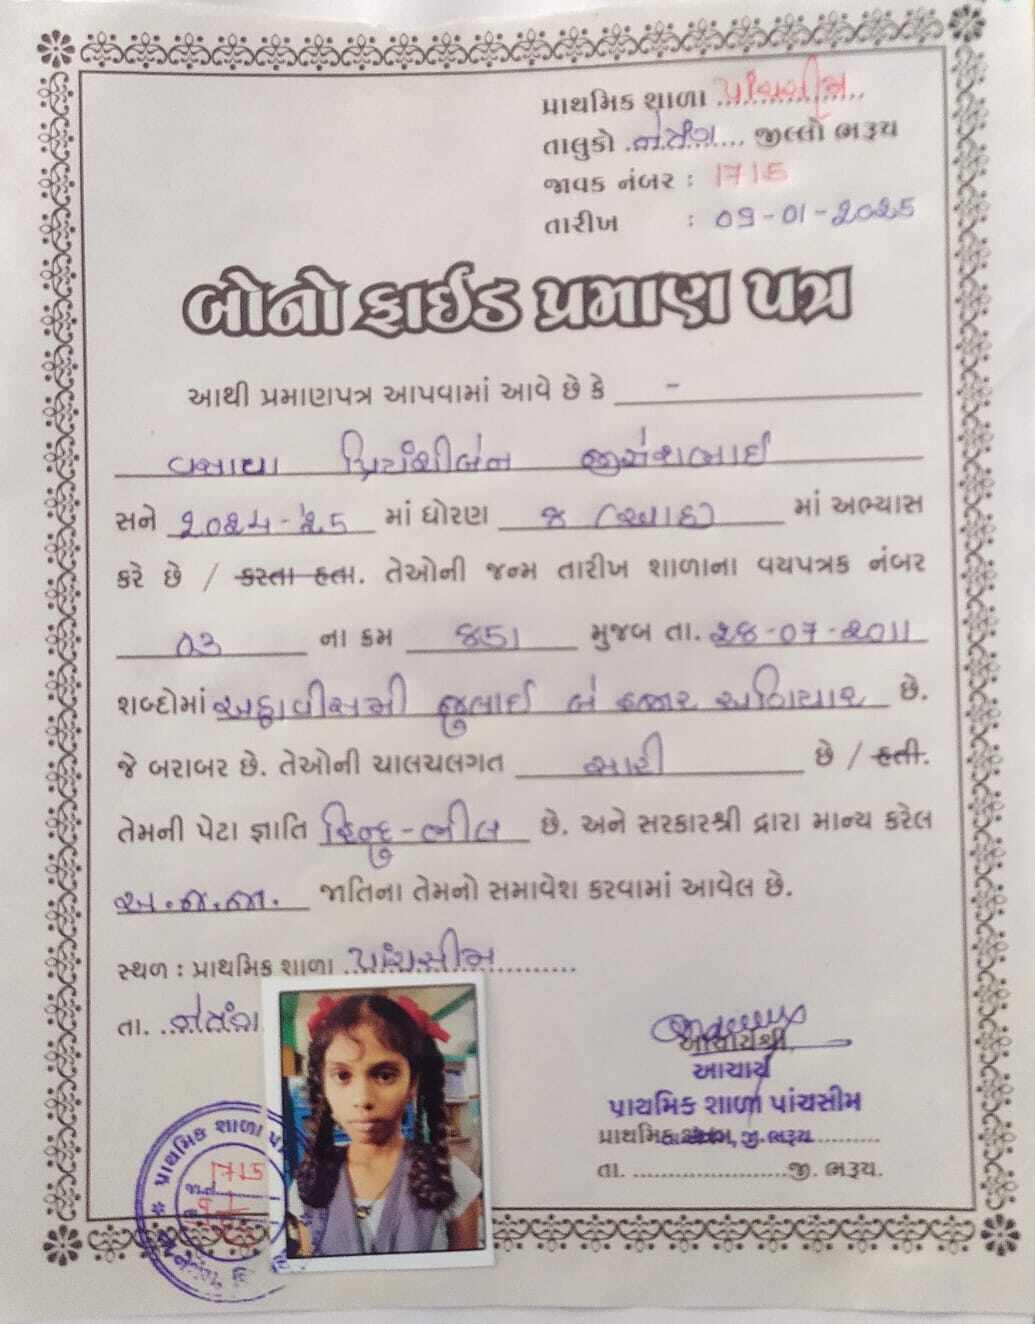 પ્રાથમિક શાળા પાંચસીમ
તાલુકો નેત્રંગ જીલ્લો ભરૂચ
જાવક નંબર : 1715
તારીખ : 09-01-2025
બોનોફાઈડ પ્રમાણ પત્ર
આથી પ્રમાણપત્ર આપવામાં આવે છે કે -
વસાવા પ્રિયાંશીબેન જીગ્નેશભાઈ
સને 2024-'25 માં ધોરણ ૪ (આઠ) માં અભ્યાસ
કરે છે / કરતા હતા. તેઓની જન્મ તારીખ શાળાના વયપત્રક નંબર
03 ના ક્રમ ૪51 મુજબ તા. 2૪-07-2011
શબ્દોમાં અઠ્ઠાવીસમી જુલાઈ બે હજાર અગિયાર છે.
જે બરાબર છે. તેઓની ચાલચલગત સારી છે / હતી.
તેમની પેટા જ્ઞાતિ હિન્દુ-ભીલ છે. અને સરકારશ્રી દ્વારા માન્ય કરેલ
અ.જ.જા. જાતિના તેમનો સમાવેશ કરવામાં આવેલ છે.
સ્થળ : પ્રાથમિક શાળા પાંચસીમ
તા. નેત્રંગ
આચાર્યશ્રી
આચાર્ય
પ્રાથમિક શાળા પાંચસીમ
પ્રાથમિક જી.ભરૂચ
તા. જી. ભરૂચ.
પ્રાથમિક શાળા
1715